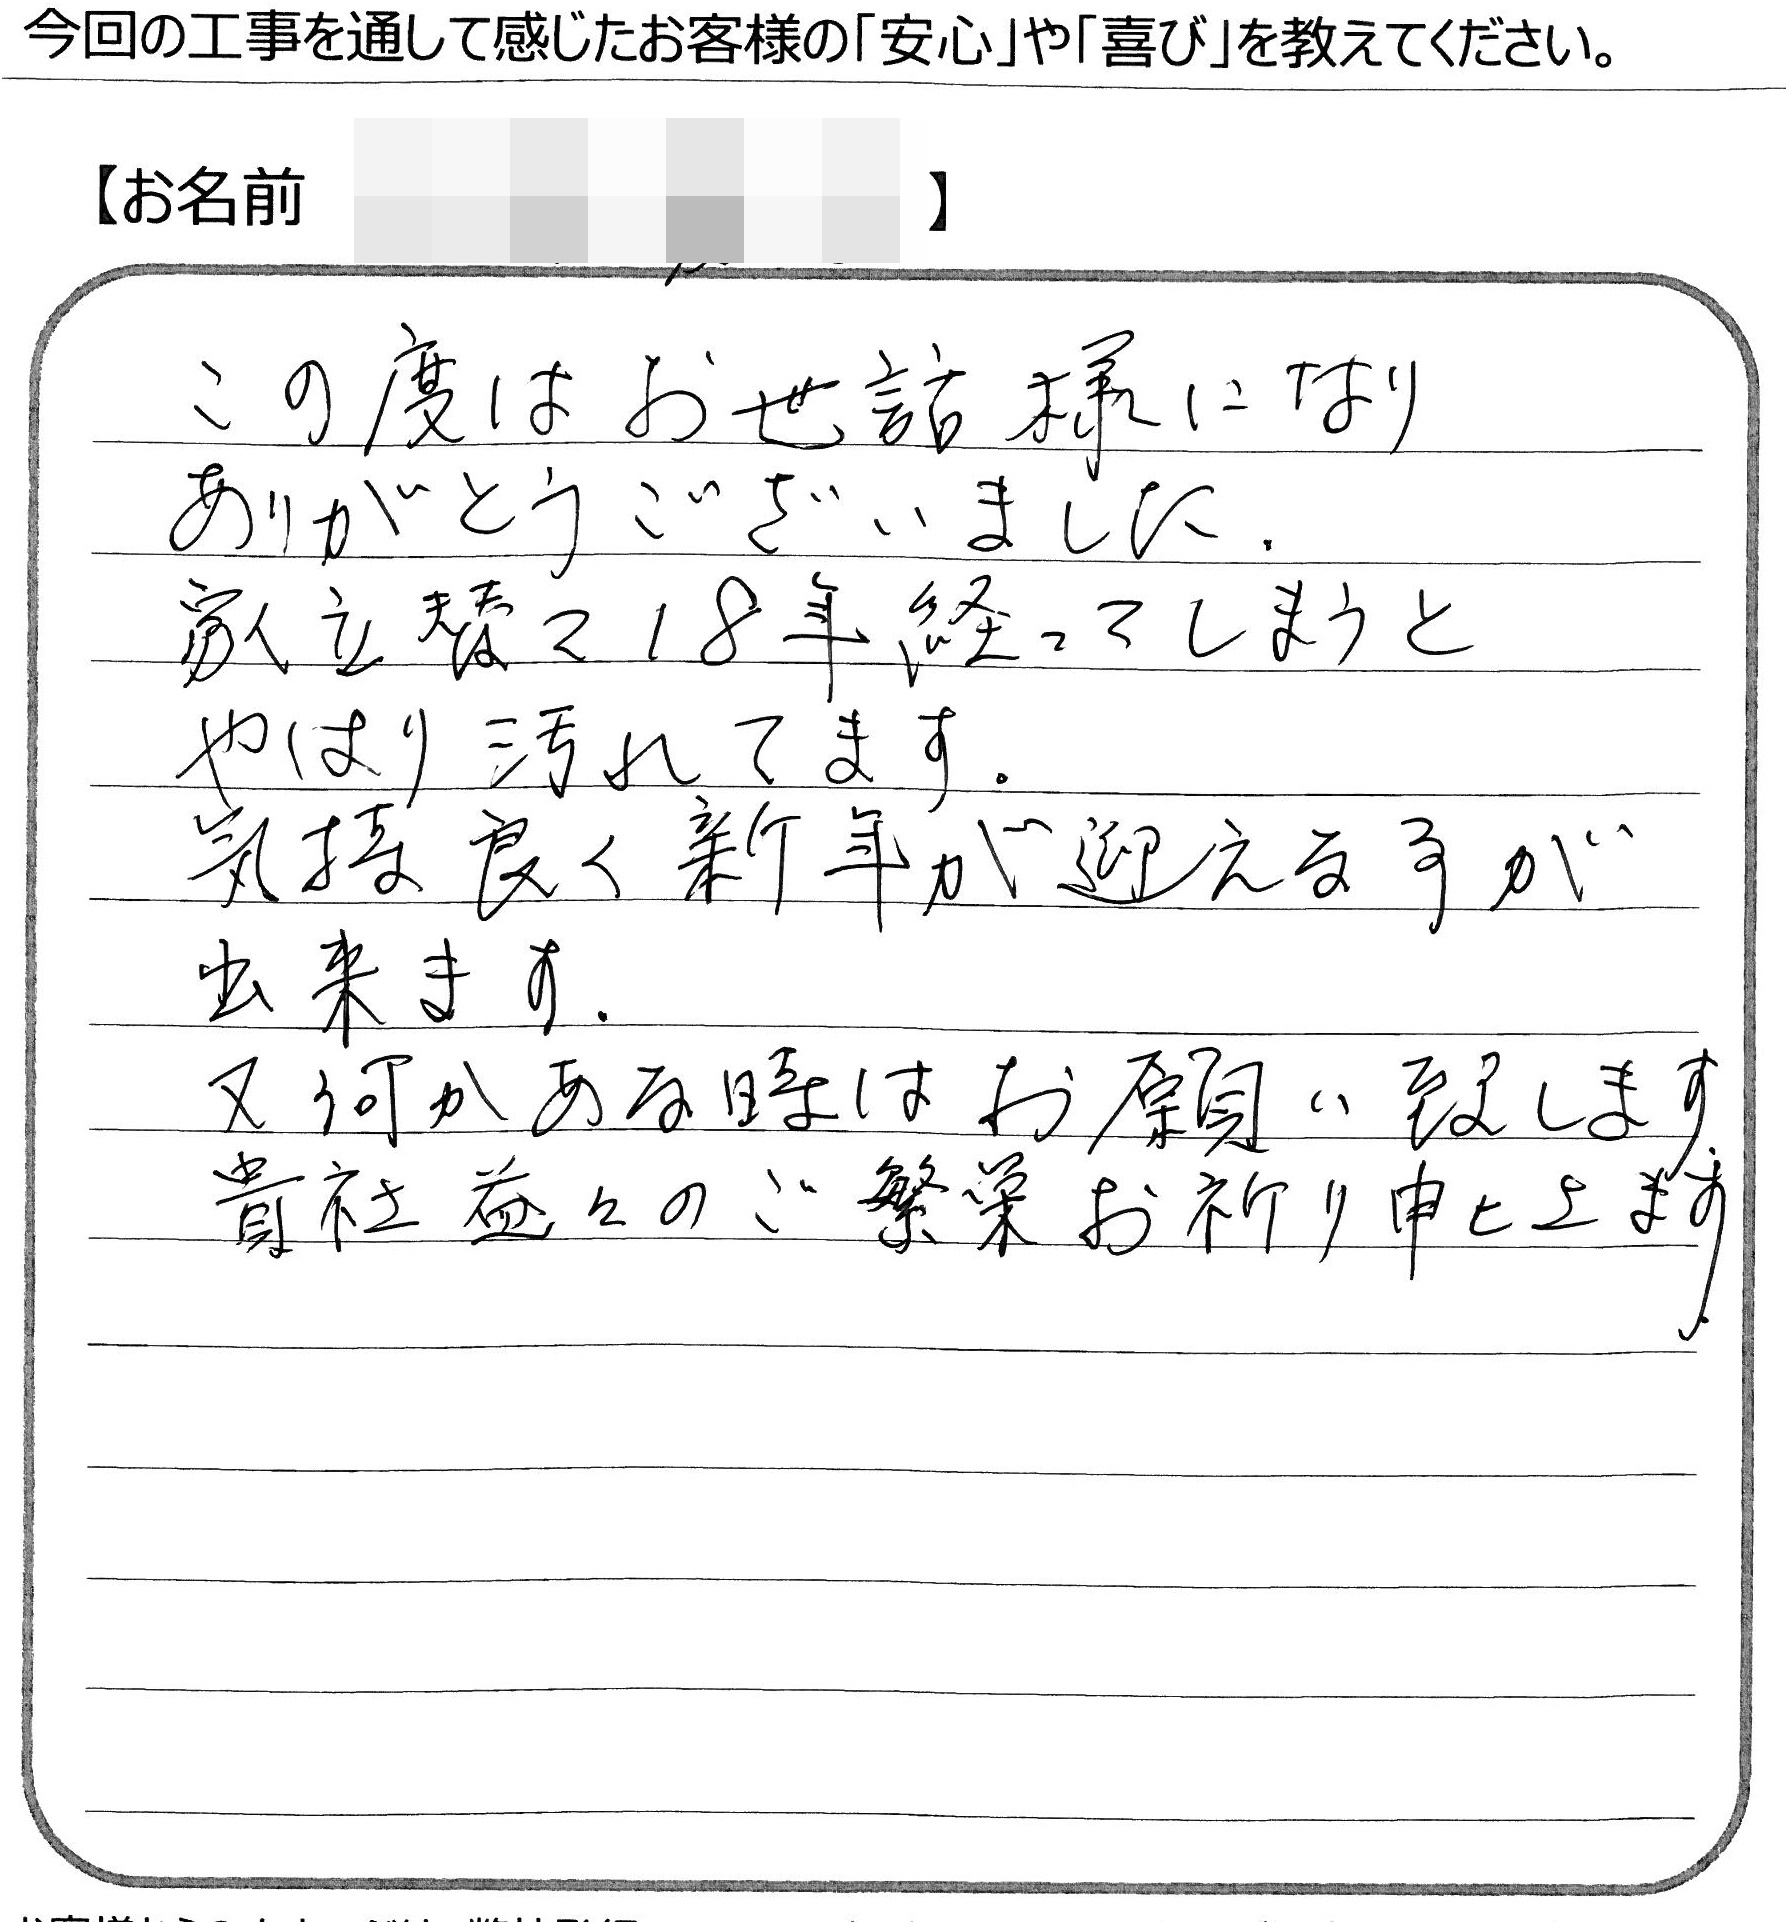 今回の工事を通して感じたお客様の「安心」や「喜び」を教えてください。
【お名前 】
この度はお世話様になり
ありがとうございました.
家立替て18年経ってしまうと
やはり汚れてます.
気持良く新年が迎える事が
出来ます.
又何かある時はお願い致します.
貴社益々のご繁栄お祈り申し上ます.